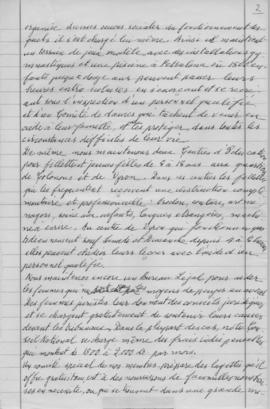 2
organise diverses œuvres sociales au fonctionnement des
quels il s'est chargé lui même. Ainsi il maintient
un terrain de jeux modèle avec des installations gy
mnastiques et une piscine à Pessalona où 1500 en
fants jusqu'à l'age ans peuvent passer leurs
heures entre classes en s'amusant et se recré
ant sous l'inspection d'un personnel qualifié
et d'un Comité de dames que tâchent de venir en
aide à leur famille, et les protéger dans toutes les
circonstances difficiles de leur vie.
De même, nous maintenons deux Centres d'Educat
pour fillettes et jeunes filles de 8 à 18 ans aux quartiers
de Colonos et de Vyron. Dans ces centres les fillettes
qui les fréquentent reçoivent une instruction complé
mentaire et professionnelle: broderie, couture, art mé
nager, soins aux enfants, langues étrangères,
Au centre de Vyron qui fonctionne
sauf Samedi et Dimanche depuis
peuvent étudier leurs leçons avec l'aide d'un
personnel qualifié.
Nous maintenons encore un Bureau Légal, pour aider
les femmes qui n'ont pas les moyens de payer un avocat
Des femmes juristes leur donnent des conseils juridiques
et se chargent gratuitement de soutenir leurs causes
devant les tribunaux. Dans la plupart des cas, notre Con
seil National se charge même des frais judiciaires
que montent de 1500 à 2000 dr par mois.
Un comité spécial de nos membres prépare des layettes qu'il
offre gratuitement à des nourrissons de familles nombreu
ses en nécessité, ou que se trouvent dans une grande mi